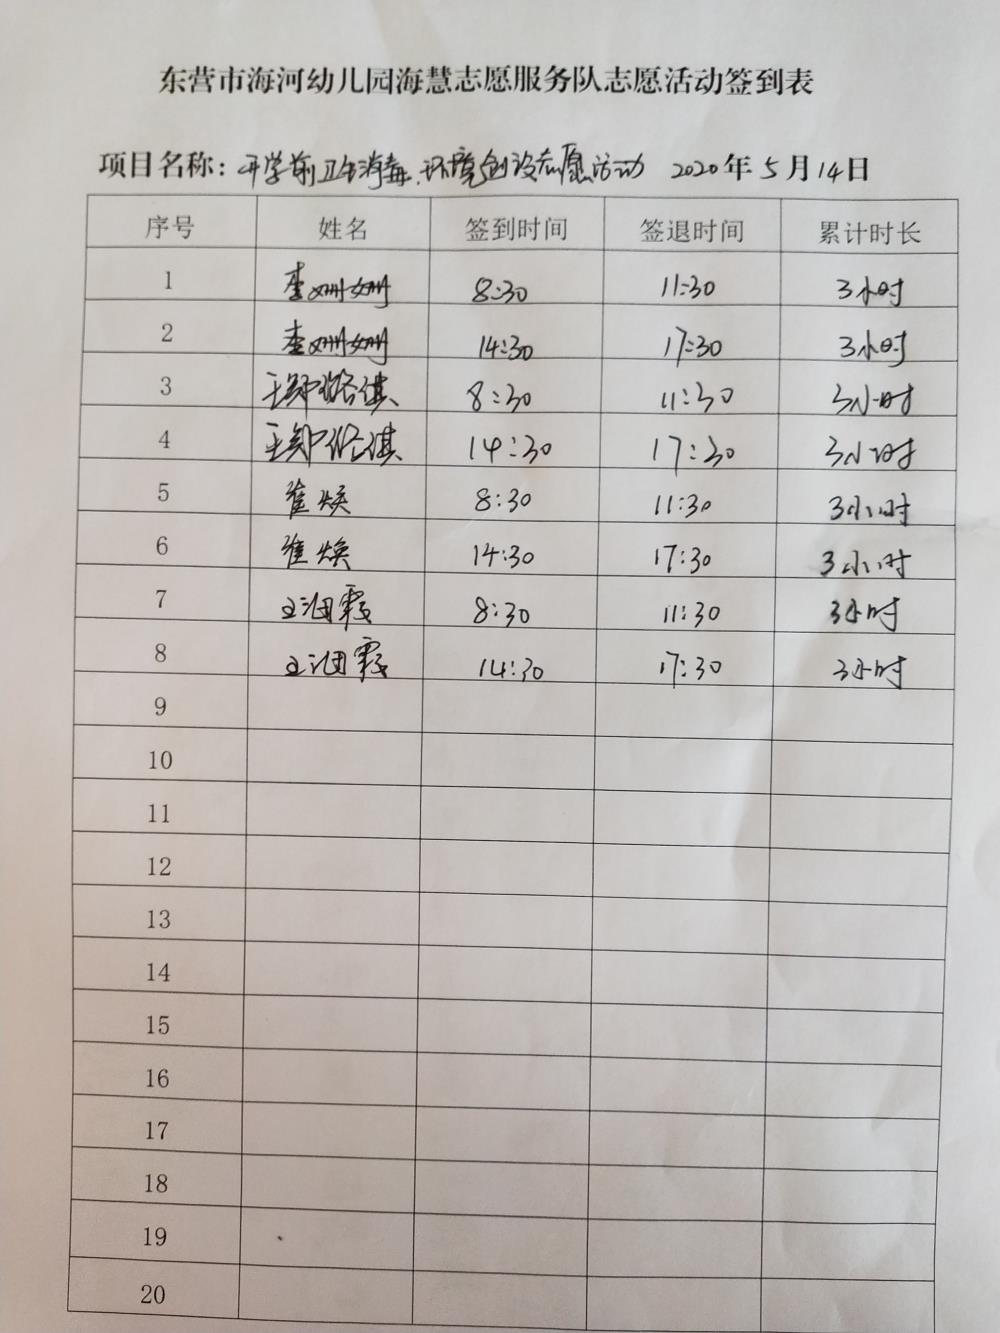 东营市海河幼儿园海慧志愿服务队志愿活动签到表
项目名称：开学前卫生消毒、环境创设志愿活动 2020年5月14日
序号 姓名 签到时间 签退时间 累计时长
1 李姗姗 8:30 11:30 3小时
2 李姗姗 14:30 17:30 3小时
3 8:30 11:30 3小时
4 14:30 17:30 3小时
5 崔焕 8:30 11:30 3小时
6 崔焕 14:30 17:30 3小时
7 8:30 11:30 3小时
8 14:30 17:30 3小时
9
10
11
12
13
14
15
16
17
18
19
20